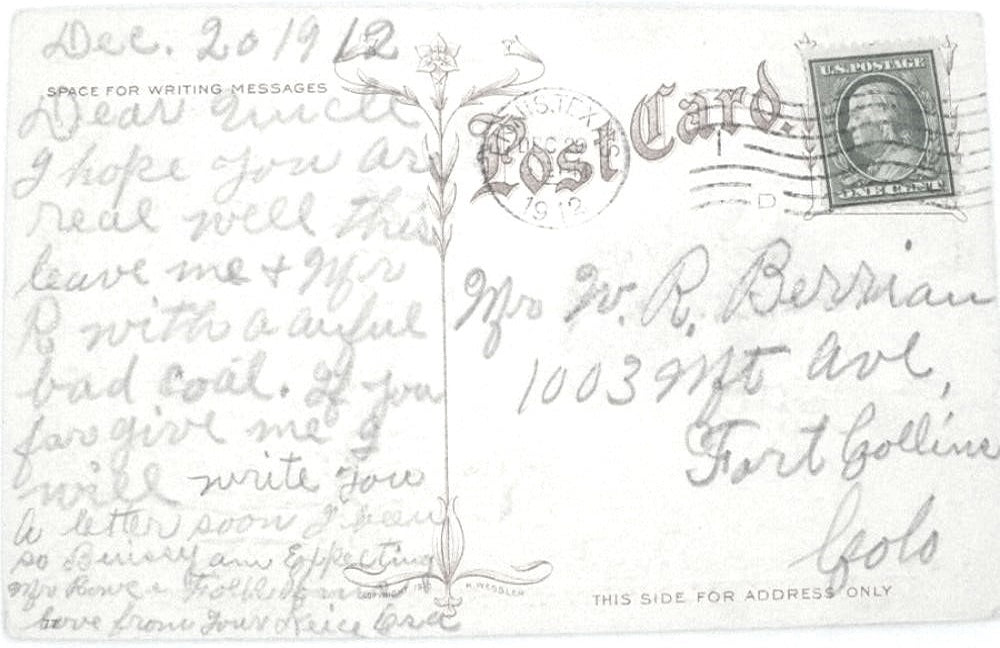 Dec. 20 1912
SPACE FOR WRITING MESSAGES
Dear Uncle
I hope you ar
real well this
leave me + Mr
R with a auful
bad coal. If you
forgive me I
will write you
a letter soon I been
so Buissy am Expecting
Mr Rowe Folks
from Your Neice
Post Card.
TEX
DEC
1912
D
U.S. POSTAGE
ONE CENT
Mr W. R. Berrian
1003 Mt Ave,
Fort Collins
Colo
COPYRIGHT H. WESSLER
THIS SIDE FOR ADDRESS ONLY